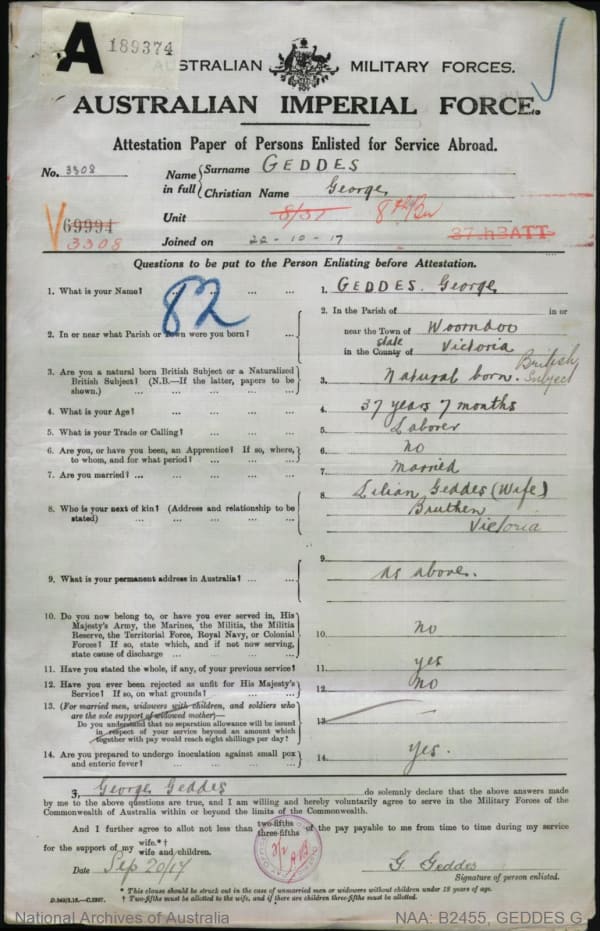 A 189374
AUSTRALIAN MILITARY FORCES.
AUSTRALIAN IMPERIAL FORCE.
Attestation Paper of Persons Enlisted for Service Abroad.
No. 3308 Name in full { Surname GEDDES
Christian Name George
Unit 8/37 8th Bn
69994
3308
Joined on 22-10-17 37.h3ATT
Questions to be put to the Person Enlisting before Attestation.
82
1. What is your Name? ... ... ... 1. GEDDES. George
2. In or near what Parish or Town were you born? ... 2. In the Parish of in or
near the Town of Woorndoo
state
in the County of Victoria
3. Are you a natural born British Subject or a Naturalized British Subject? (N.B.—If the latter, papers to be shown.) ... ... ... ... 3. Natural born. British Subject
4. What is your Age? ... ... ... ... 4. 37 years 7 months
5. What is your Trade or Calling? ... ... ... 5. Laborer
6. Are you, or have you been, an Apprentice? If so, where, to whom, and for what period? ... ... ... 6. No
7. Are you married? ... ... ... ... 7. Married
8. Who is your next of kin? (Address and relationship to be stated) ... ... ... ... 8. Lilian Geddes (Wife)
Bruthen
Victoria
9. What is your permanent address in Australia? ... ... 9. as above.
10. Do you now belong to, or have you ever served in, His Majesty's Army, the Marines, the Militia, the Militia Reserve, the Territorial Force, Royal Navy, or Colonial Forces? If so, state which, and if not now serving, state cause of discharge ... ... ... 10. no
11. Have you stated the whole, if any, of your previous service? 11. yes
12. Have you ever been rejected as unfit for His Majesty's Service? If so, on what grounds? ... ... 12. No
13. (For married men, widowers with children, and soldiers who are the sole support of widowed mother)—
Do you understand that no separation allowance will be issued in respect of your service beyond an amount which together with pay would reach eight shillings per day? ... 13.
14. Are you prepared to undergo inoculation against small pox and enteric fever? ... ... ... ... 14. Yes.
I, George Geddes do solemnly declare that the above answers made
by me to the above questions are true, and I am willing and hereby voluntarily agree to serve in the Military Forces of the
Commonwealth of Australia within or beyond the limits of the Commonwealth.
And I further agree to allot not less than two-fifths three-fifths of the pay payable to me from time to time during my service
for the support of my wife.*† wife and children.
Date Sep 20/17 G. Geddes
Signature of person enlisted.
* This clause should be struck out in the case of unmarried men or widowers without children under 18 years of age.
† Two-fifths must be allotted to the wife, and if there are children three-fifths must be allotted.
National Archives of Australia NAA: B2455, GEDDES G